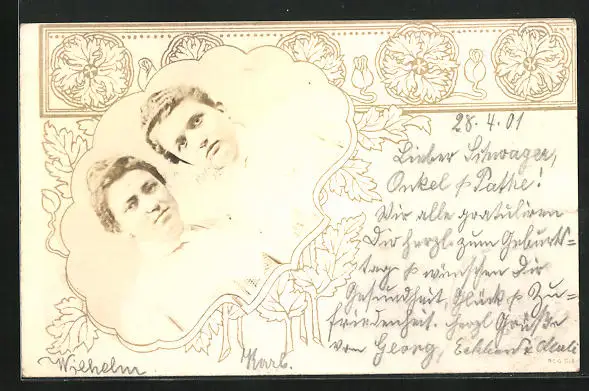 28.4.01
Lieber Schwager,
Onkel & Pathe!
Wir alle gratuliren
Dir herzl. zum Geburts-
tag & wünschen Dir
Gesundheit, Glück & Zu-
friedenheit. Herzl Grüße
von Georg, Eckhard &
Wilhelm
Karl.